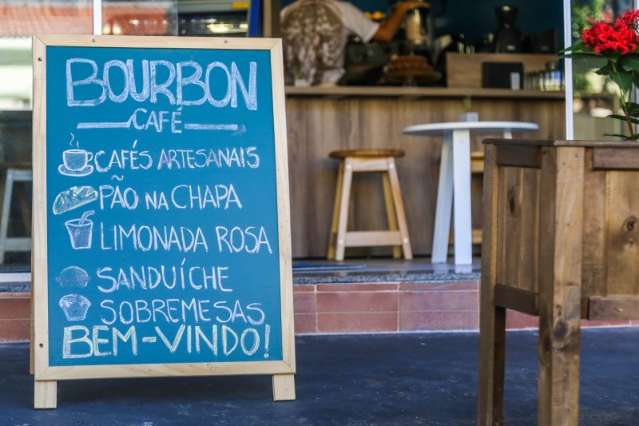 BOURBON
CAFÉ
CAFÉS ARTESANAIS
PÃO NA CHAPA
LIMONADA ROSA
SANDUÍCHE
SOBREMESAS
BEM-VINDO!